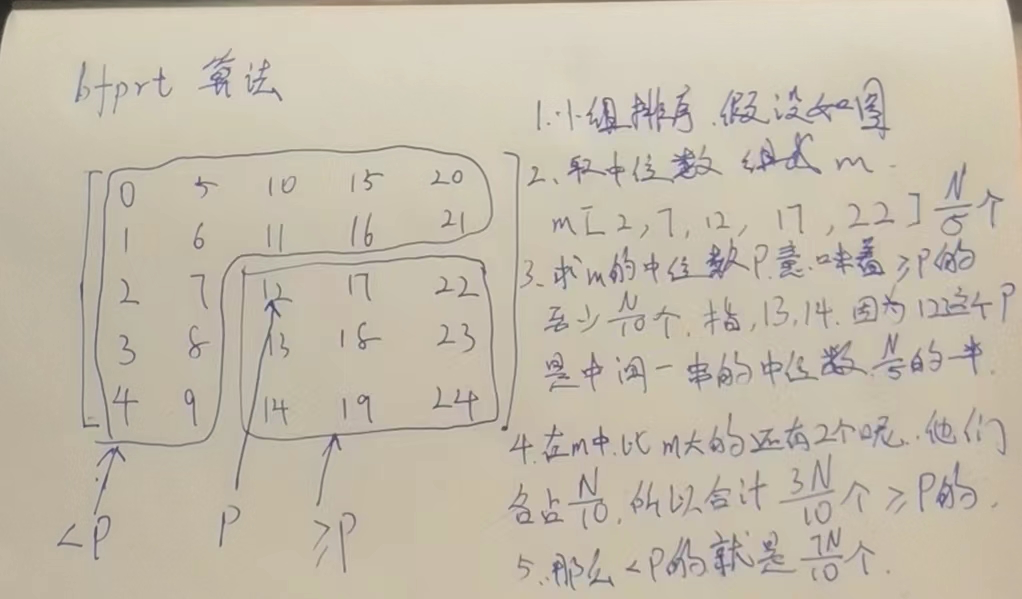 bfprt 算法
0 5 10 15 20
1 6 11 16 21
2 7 12 17 22
3 8 13 18 23
4 9 14 19 24
<P P ≥P
1.小组排序.假设如图
2、取中位数 组成 m.
m[2,7,12, 17,22] N/5个
3、求m的中位数P.意味着≥P的
至少N/10个.指,13,14.因为12这个P
是中间一串的中位数.N/5的一半.
4.在m中.比m大的还有2个呢..他们
各占N/10.所以合计 3N/10个≥P的.
5..那么<P的就是7N/10个.